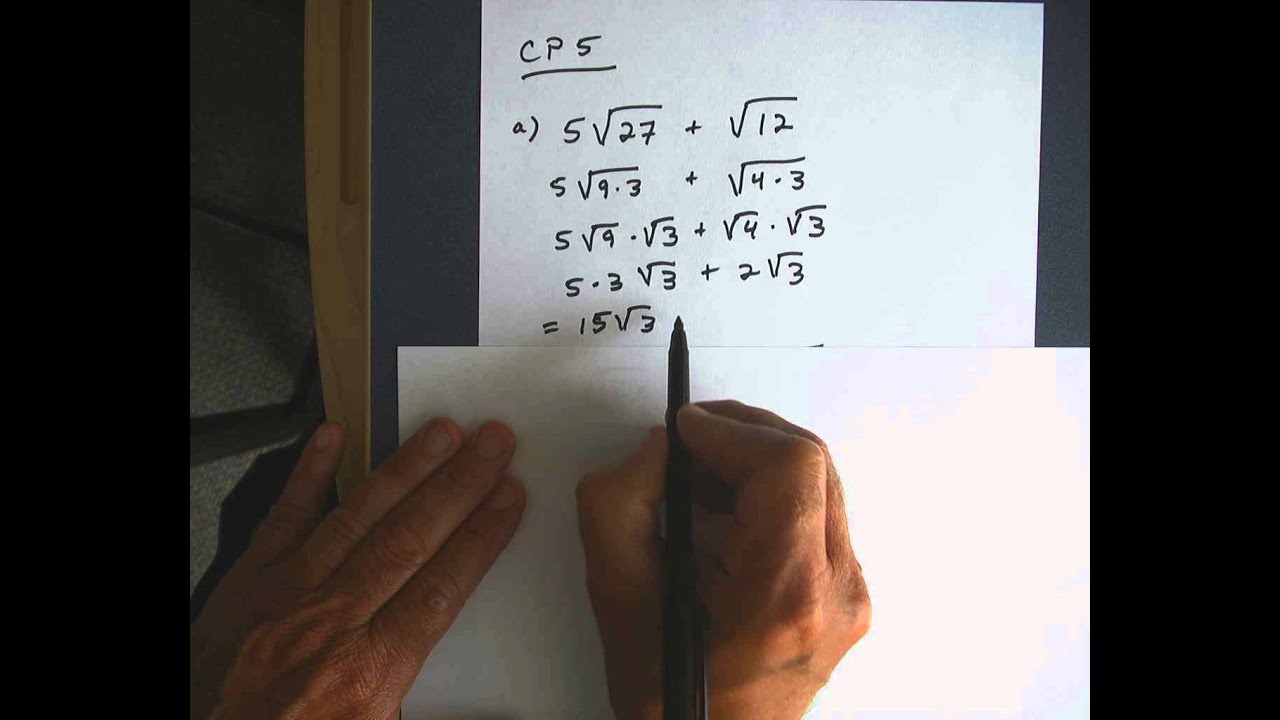 CP 5
a) 5√27 + √12
5√9·3 + √4·3
5√9·√3 + √4·√3
5·3√3 + 2√3
= 15√3